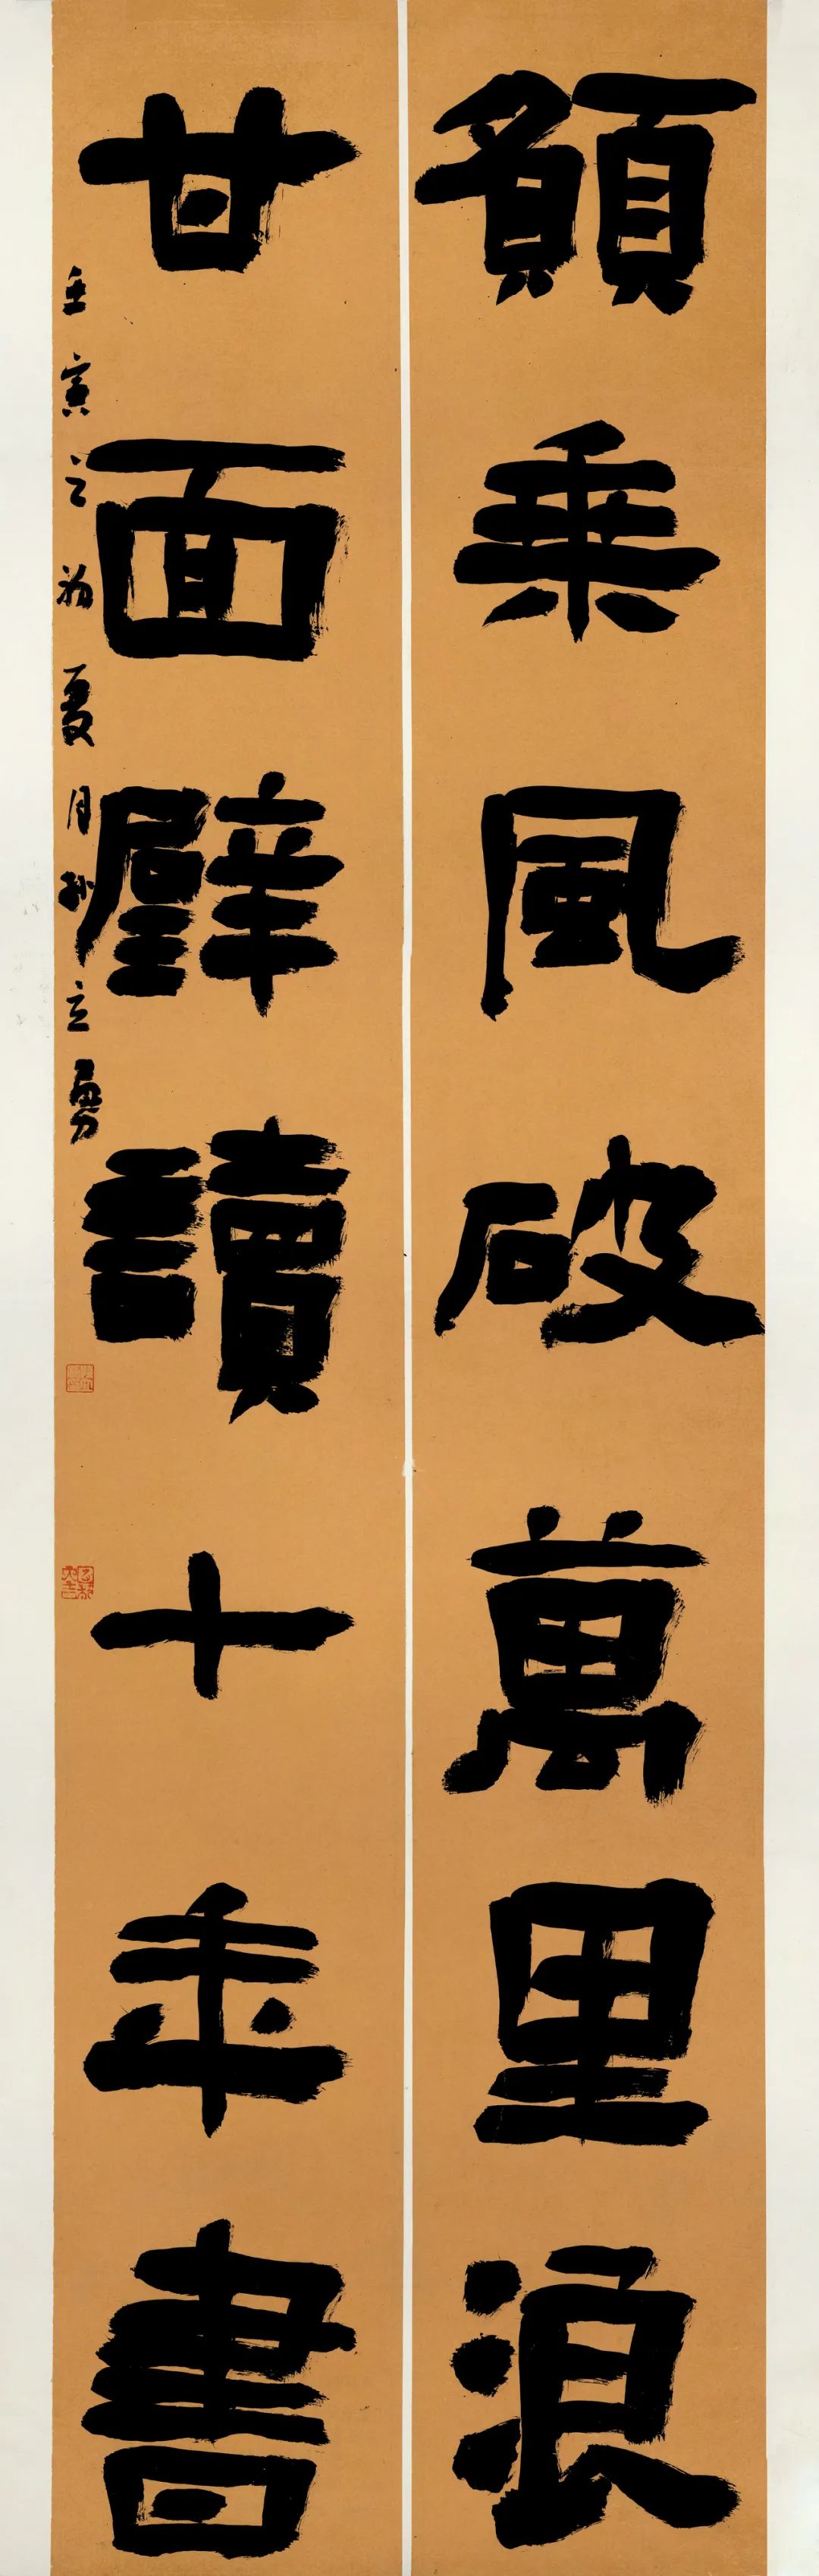 願乘風破萬里浪
甘面壁讀十年書
壬寅之初夏月孙立勇